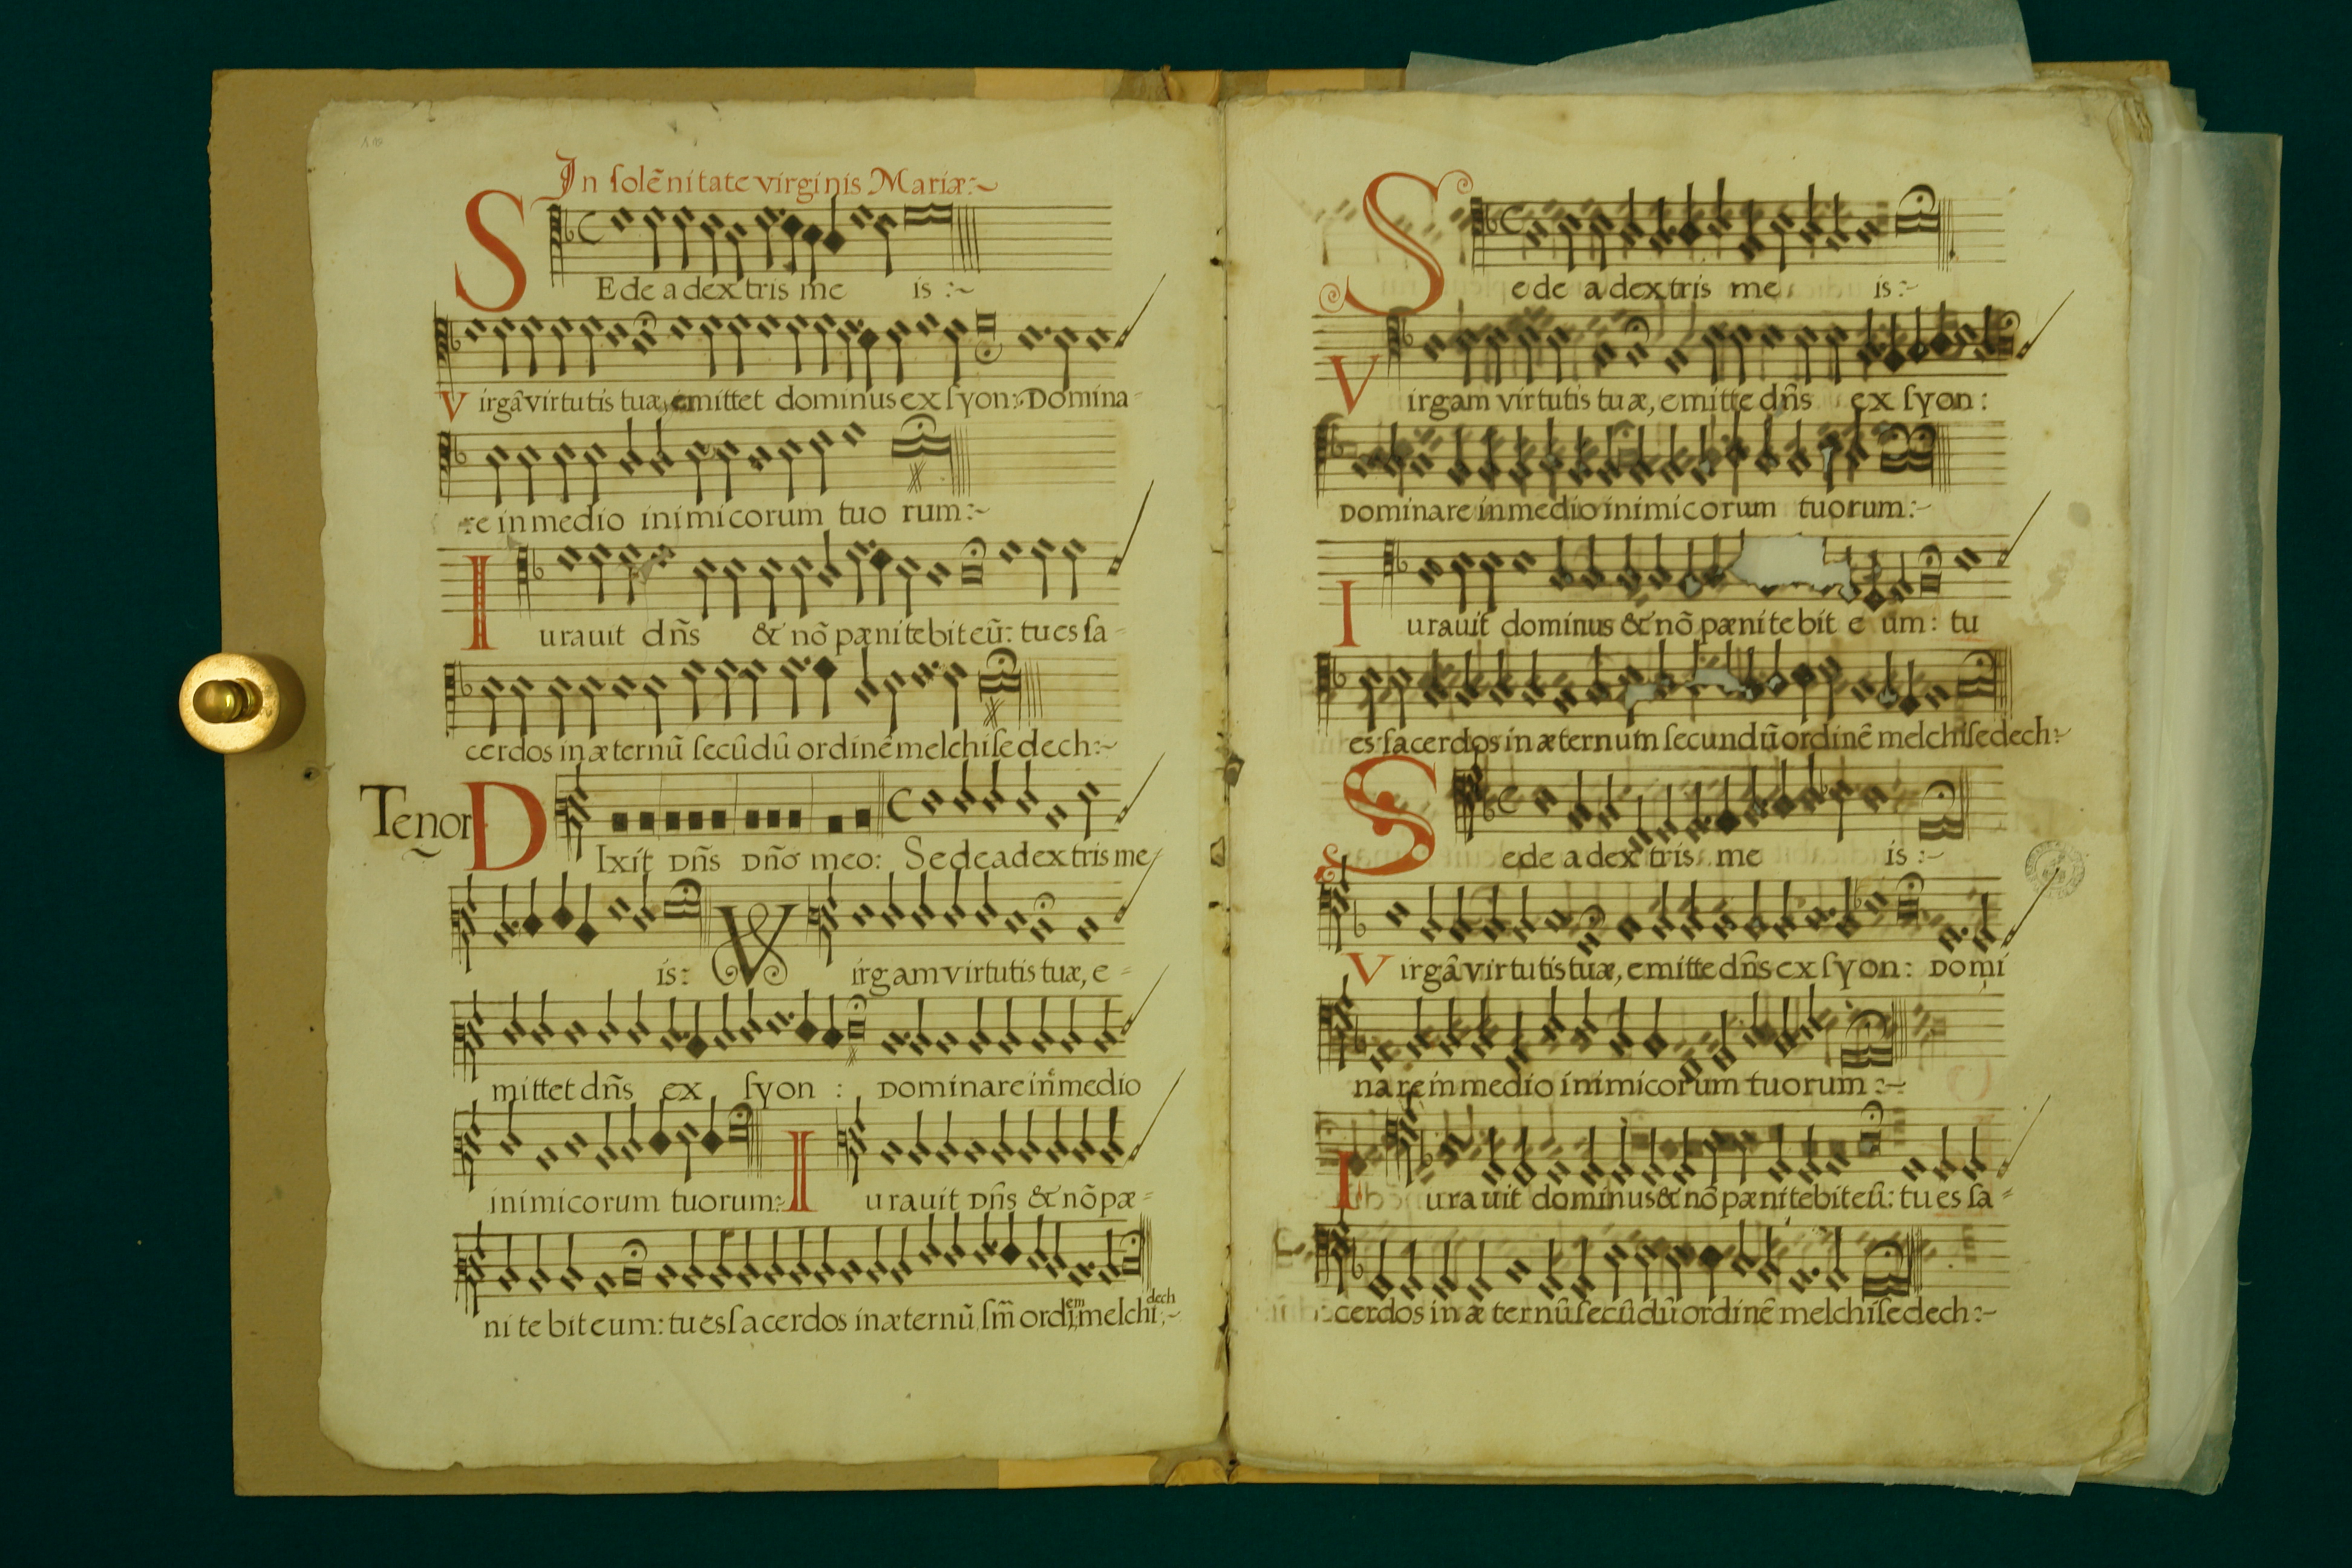 In solẽnitate virginis Mariæ:~
SEde a dextris me is :~
Virgã virtutis tuæ, emittet dominus ex syon: Domina-
re in medio inimicorum tuo rum:~
Iurauit dñs & nõ pænitebit eũ: tu es sa-
cerdos in æternũ secũdũ ordinẽ melchisedech:~
Tenor DIxit Dñs Dño meo: Sede a dextris me
is: Virgam virtutis tuæ, e-
mittet dñs ex syon : Dominare in medio
inimicorum tuorum:~ Iurauit Dñs & nõ pæ-
ni te bit eum: tu es sacerdos in æternũ sm̃ ordiem melchidech:~
Sede a dextris me is:~
Virgam virtutis tuæ, emitte dñs ex syon:
Dominare in medio inimicorum tuorum:~
Iurauit dominus & nõ pænitebit e um: tu
es sacerdos in æternum secundũ ordinẽ melchisedech:~
Sede a dextris me is:~
Virgã virtutis tuæ, emitte dñs ex syon: Domi
nare in medio inimicorum tuorum:~
Iurauit dominus & nõ pænitebit eũ: tu es sa-
cerdos in æternũ secũdũ ordinẽ melchisedech:~